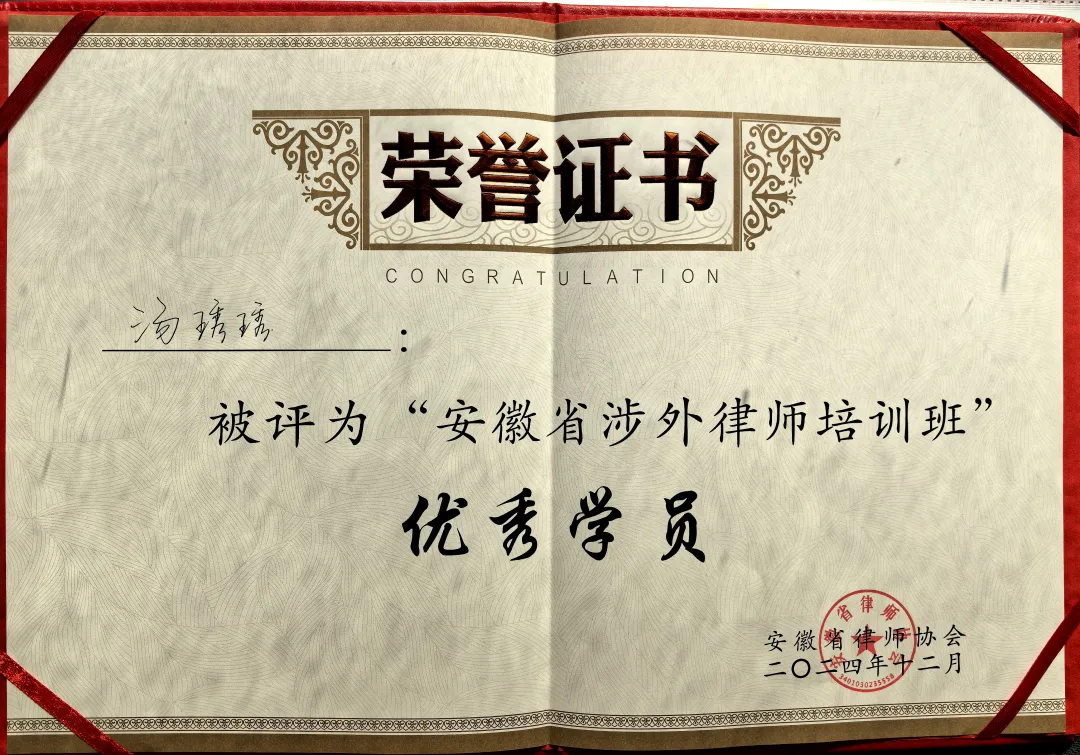 荣誉证书
CONGRATULATION
汤琇琇：
被评为“安徽省涉外律师培训班”
优秀学员
安徽省律师协会
二〇二四年十二月
安徽省律师协会
3401030235558